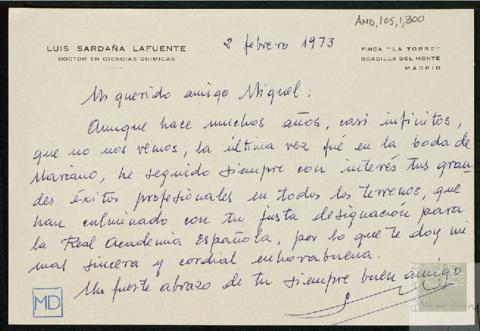 AMD,105,1,300
LUIS SARDAÑA LAFUENTE
DOCTOR EN CIENCIAS QUIMICAS
2 febrero 1973
FINCA "LA TORRE"
BOADILLA DEL MONTE
MADRID
Mi querido amigo Miguel:
Aunque hace muchos años, casi infinitos,
que no nos vemos, la última vez fué en la boda de
Marzano, he seguido siempre con interés tus gran-
des éxitos profesionales en todos los terrenos, que
han culminado con tu justa designación para
la Real Academia Española, por lo que te doy mi
mas sincera y cordial enhorabuena.
Un fuerte abrazo de tu siempre buen amigo
MD